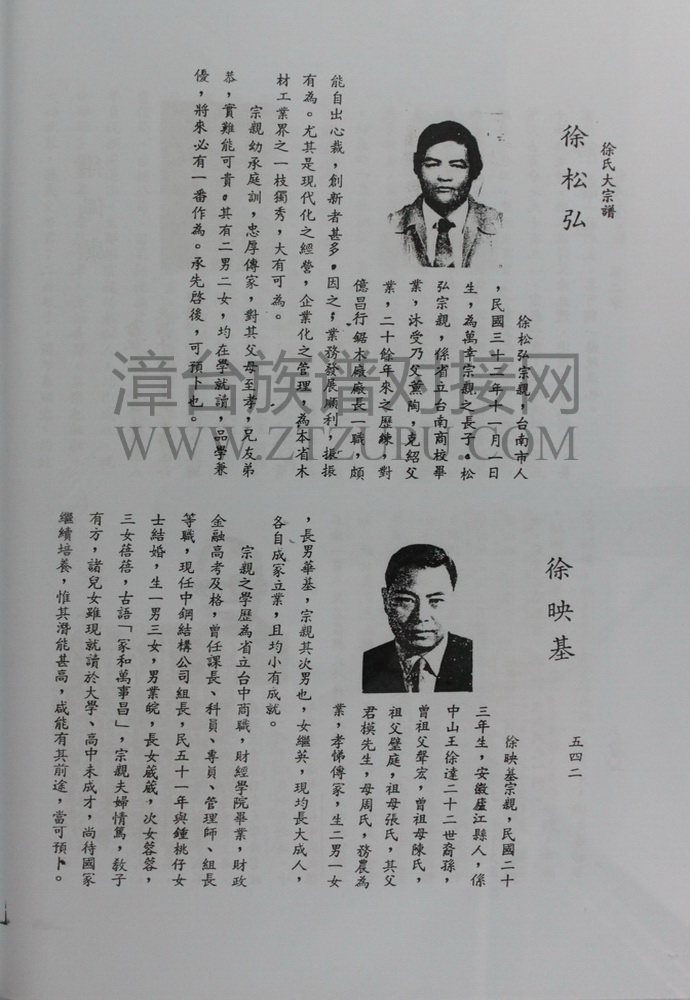 徐氏大宗譜
徐松弘
徐松弘宗親，台南市人
，民國三十二年十一月一日
生，為萬幸宗親之長子。松
弘宗親，係省立台南商校畢
業，沐受乃父薰陶，克紹父
業，二十餘年來之歷練，對
億昌行鋸木廠廠長一職，頗
能自出心裁，創新者甚多。因之，業務發展順利，振振
有為。尤其是現代化之經營，企業化之管理，為本省木
材工業界之一枝獨秀，大有可為。
宗親幼承庭訓，忠厚傳家，對其父母至孝，兄友弟
恭，實難能可貴。其有二男二女，均在學就讀，品學兼
優，將來必有一番作為。承先啓後，可預卜也。
徐映基
五四二
徐映基宗親，民國二十
三年生，安徽廬江縣人，係
中山王徐達二十二世裔孫，
曾祖父聲宏，曾祖母陳氏，
祖父壁庭，祖母張氏，其父
君模先生，母周氏，務農為
業，孝悌傳家，生二男一女
，長男華基，宗親其次男也，女繼英，現均長大成人，
各自成家立業，且均小有成就。
宗親之學歷為省立台中商職，財經學院畢業，財政
金融高考及格，曾任課長、科員、專員、管理師、組長
等職，現任中鋼結構公司組長，民五十一年與鍾桃仔女
士結婚，生一男三女，男業皖，長女葳葳，次女蓉蓉，
三女蓓蓓，古語「家和萬事昌」，宗親夫婦情篤，教子
有方，諸兒女雖現就讀於大學、高中未成才，尚待國家
繼續培養，惟其潛能甚高，咸能有其前途，當可預卜。
漳台族谱对接网
WWW.ZTZUPU.COM